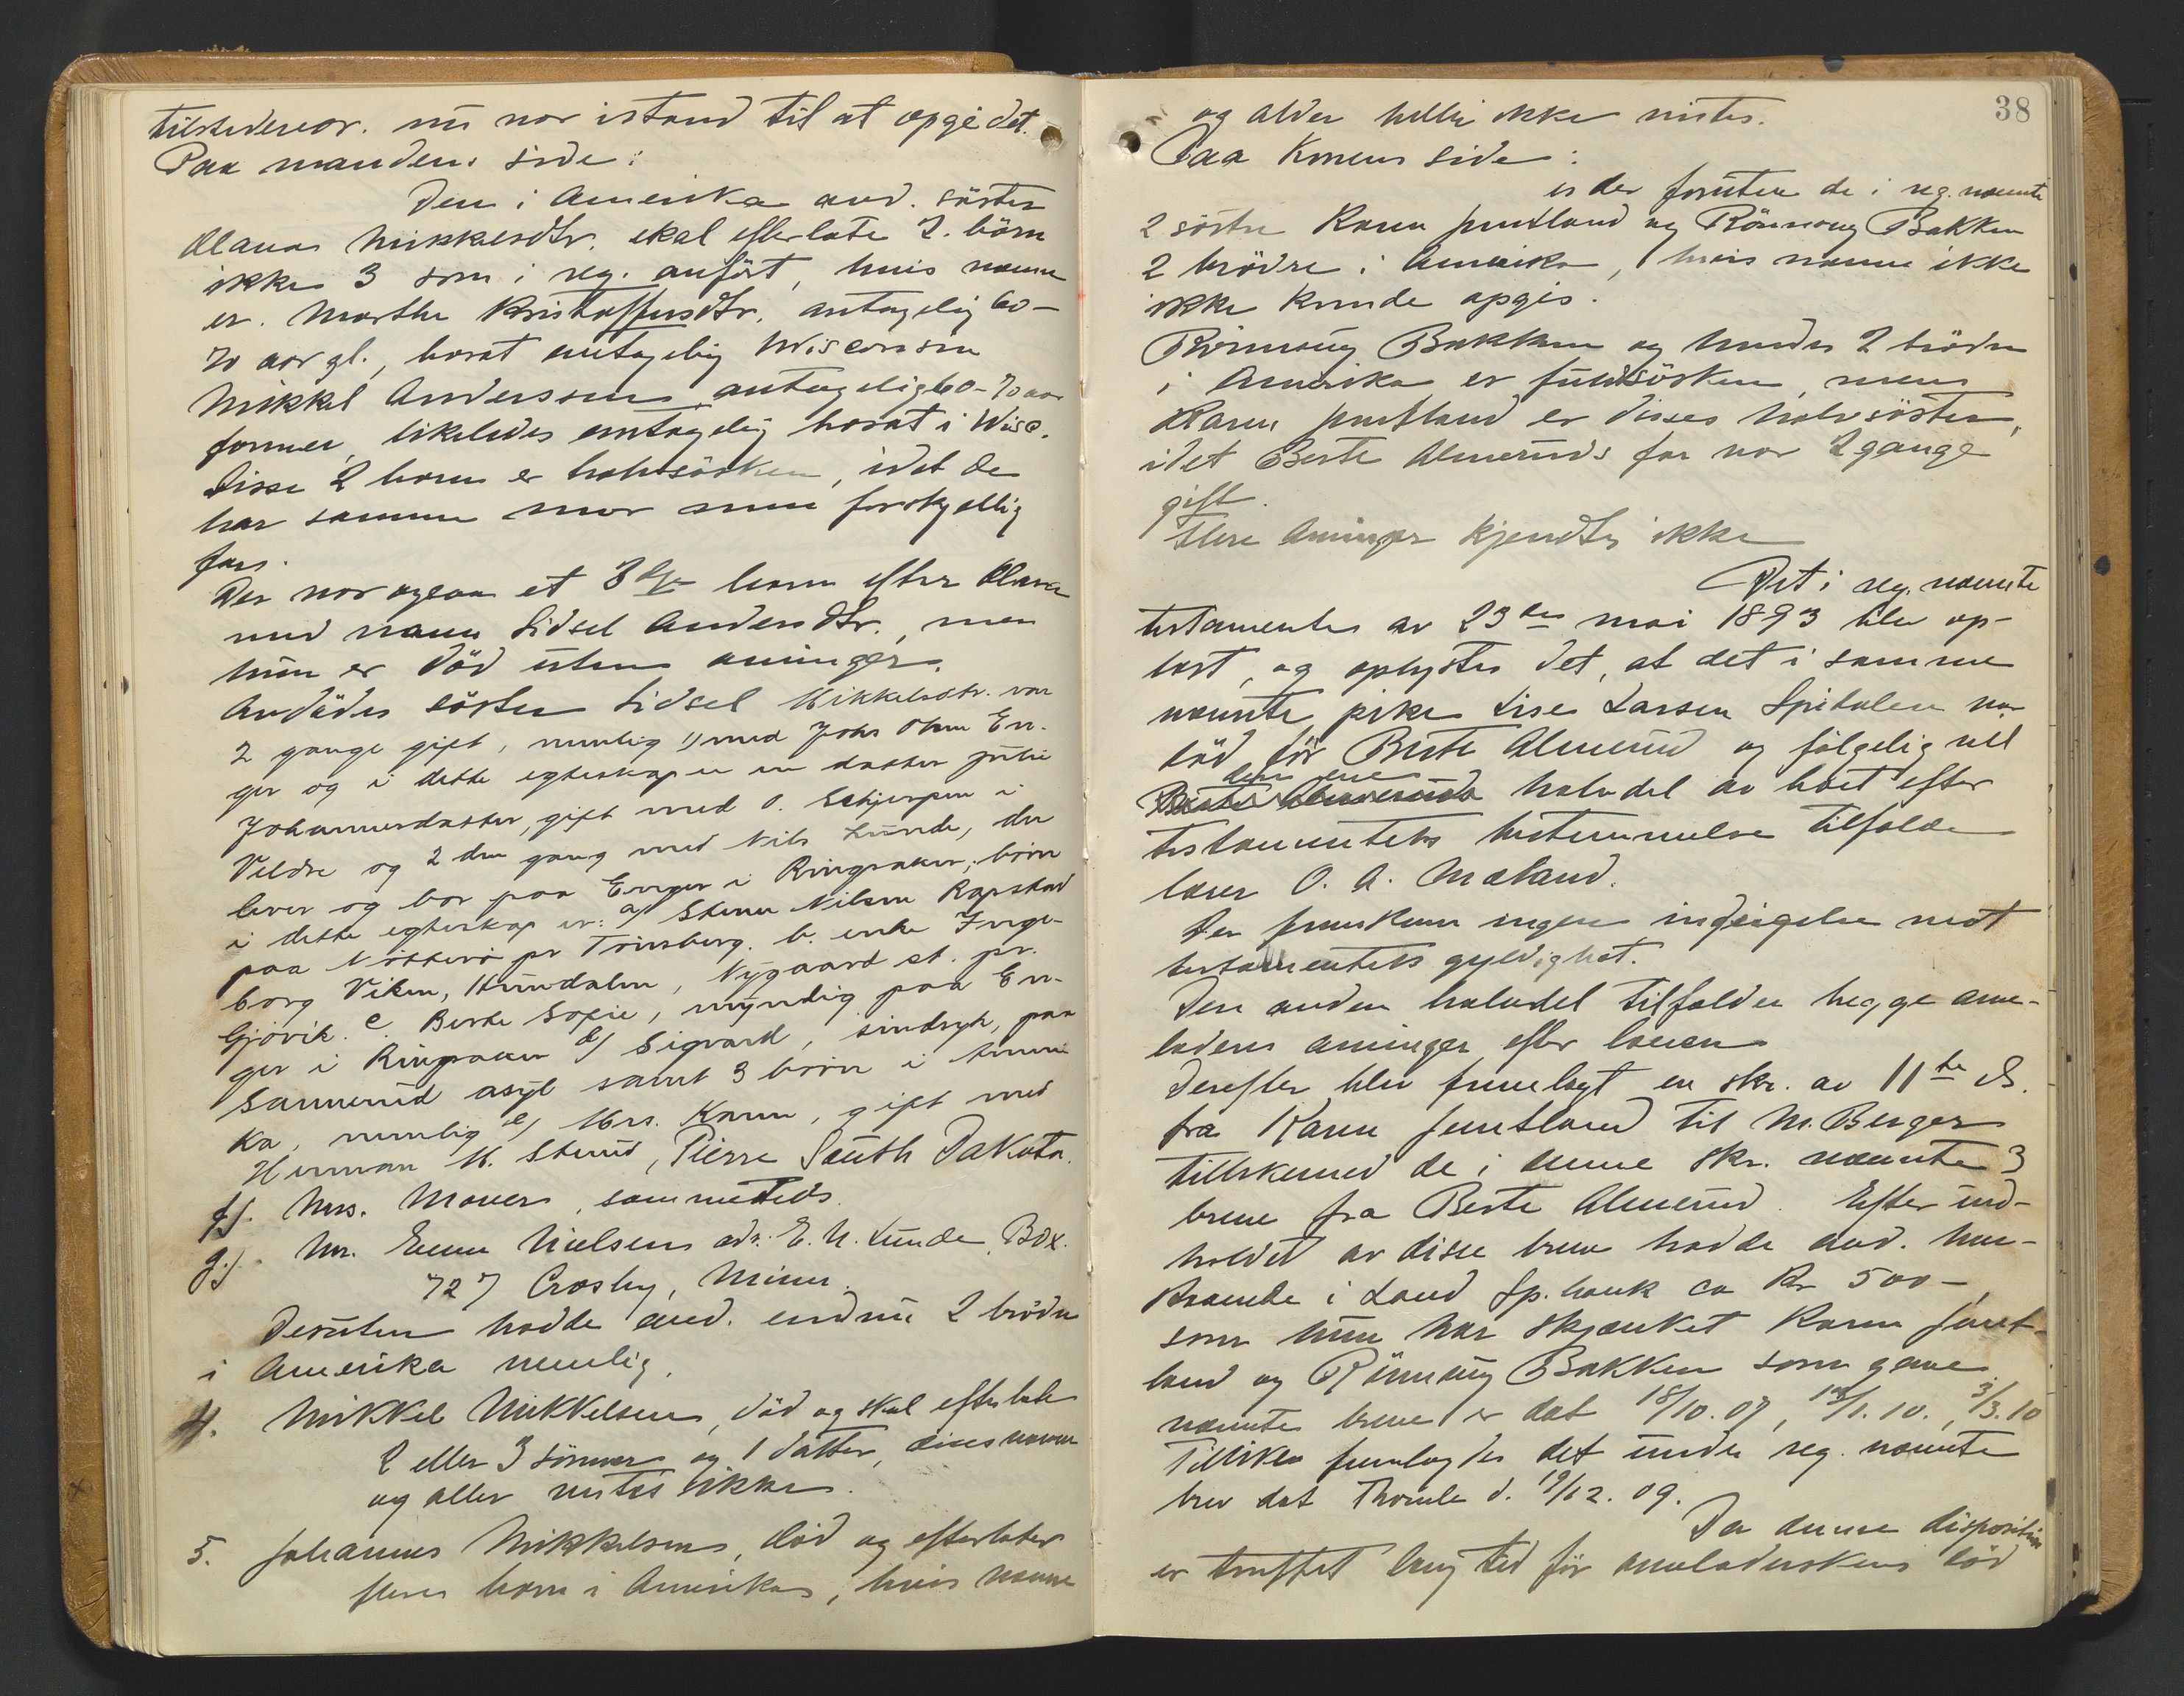 tilstedevær. nu var istand til at opgi det.
Paa mandens side:
Den i Amerika avd. søster
Olava Mikkelsdtr. skal efterlate 2 børn
ikke 3 som i reg. anført, hvis navne
er. Marthe Kristoffersdtr. antagelig 60-
70 aar gl., bosat antagelig Wisconsin
Mikkel Anderssen, antagelig 60-70 aar
farmer, likeledes antagelig bosat i Wisc.
Disse 2 barn er halvsøsken, idet de
har samme mor men forskjellig
far.
Der var ogsaa et 3dje barn efter Olava
med navn Sidsel Andersdtr., men
hun er død uten arvinger.
Avdødes søster Sidsel Mikkelsdtr. var
2 gange gift, nemlig 1) med Johs Olsen En-
ger og i dette egteskap er en datter Julie
Johannesdatter, gift med O. Schjerpen i
Veldre og 2 den gang med Nils Lunde, der
lever og bor paa Enger i Ringsaker; børn
i dette egteskap er: a) Stener Nilsen Rapstad
paa Nøtterø pr Tønsberg. b. enke Inge-
borg Viken, Hundalen, Nygaard st. pr.
Gjøvik. c. Berte Sofie, myndig paa En-
ger i Ringsaker d) Sigvard, sindsyk, paa
Sannerud asyl samt 3 børn i Ameri
ka, nemlig e) Mrs. Karen, gift med
Herman M. Sterud, Pierre South Dakota.
f). Mrs. Mouer, sammesteds.
g.) Mr. Even Nielsen adr. E. N. Lunde, Box.
727 Crosby, Minn.
Desuten hadde avd. endnu 2 brødre
i Amerika nemlig.
4. Mikkel Mikkelsen, død og skal efterlate
2 eller 3 sønner og 1 datter, disses navne
og alder vites ikke.
5. Johannes Mikkelsen, død og efterlater
flere barn i Amerika, hvis navne
38
og alder heller ikke vites.
Paa Konens side:
er der foruten de i reg. nævnte
2 søstre Karen Juntland og Rønnaug Bakken
2 brødre i Amerika, hvis navne ikke
ikke kunde opgis.
Rønnaug Bakken og hendes 2 brødre
i Amerika er fuldsøsken, mens
Karen Juntland er disses halvsøster,
idet Berte Almeruds far var 2 gange
gift.
Flere Arvinger kjendtes ikke
Det i reg. nævnte
testamente av 23de mai 1893 blev op-
læst, og oplystes det, at det i samme
nævnte pike Lise Larsen Spitalen var
død før Berte Almerud og følgelig vil
den ene
Berte Almeruds halvdel av boet efter
testamentets bestemmelse tilfalde
lærer O. A. Mæland.
Der fremkom ingen indsigelse mot
testamentets gyldighet.
Den anden halvdel tilfalder begge arve-
laderes arvinger efter loven
Derefter blev fremlagt en skr. av 11te ds.
fra Karen Juntland til M. Berger
tillikemed de i denne skr. nævnte 3
breve fra Berte Almerud. Efter ind-
holdet av disse breve hadde avd. hen-
staaende i Land Sp.bank ca Kr 500-,
som hun har skjænket Karen Junt-
land og Rønnaug Bakken som gave.
nævnte breve er dat 18/10.07, 12/1.10., 3/3.10
Tillike fremlagdes det under reg. nævnte
brev dat Thomle d. 19/12.09.
Da denne disposition
er truffet lang tid før arveladerskens død